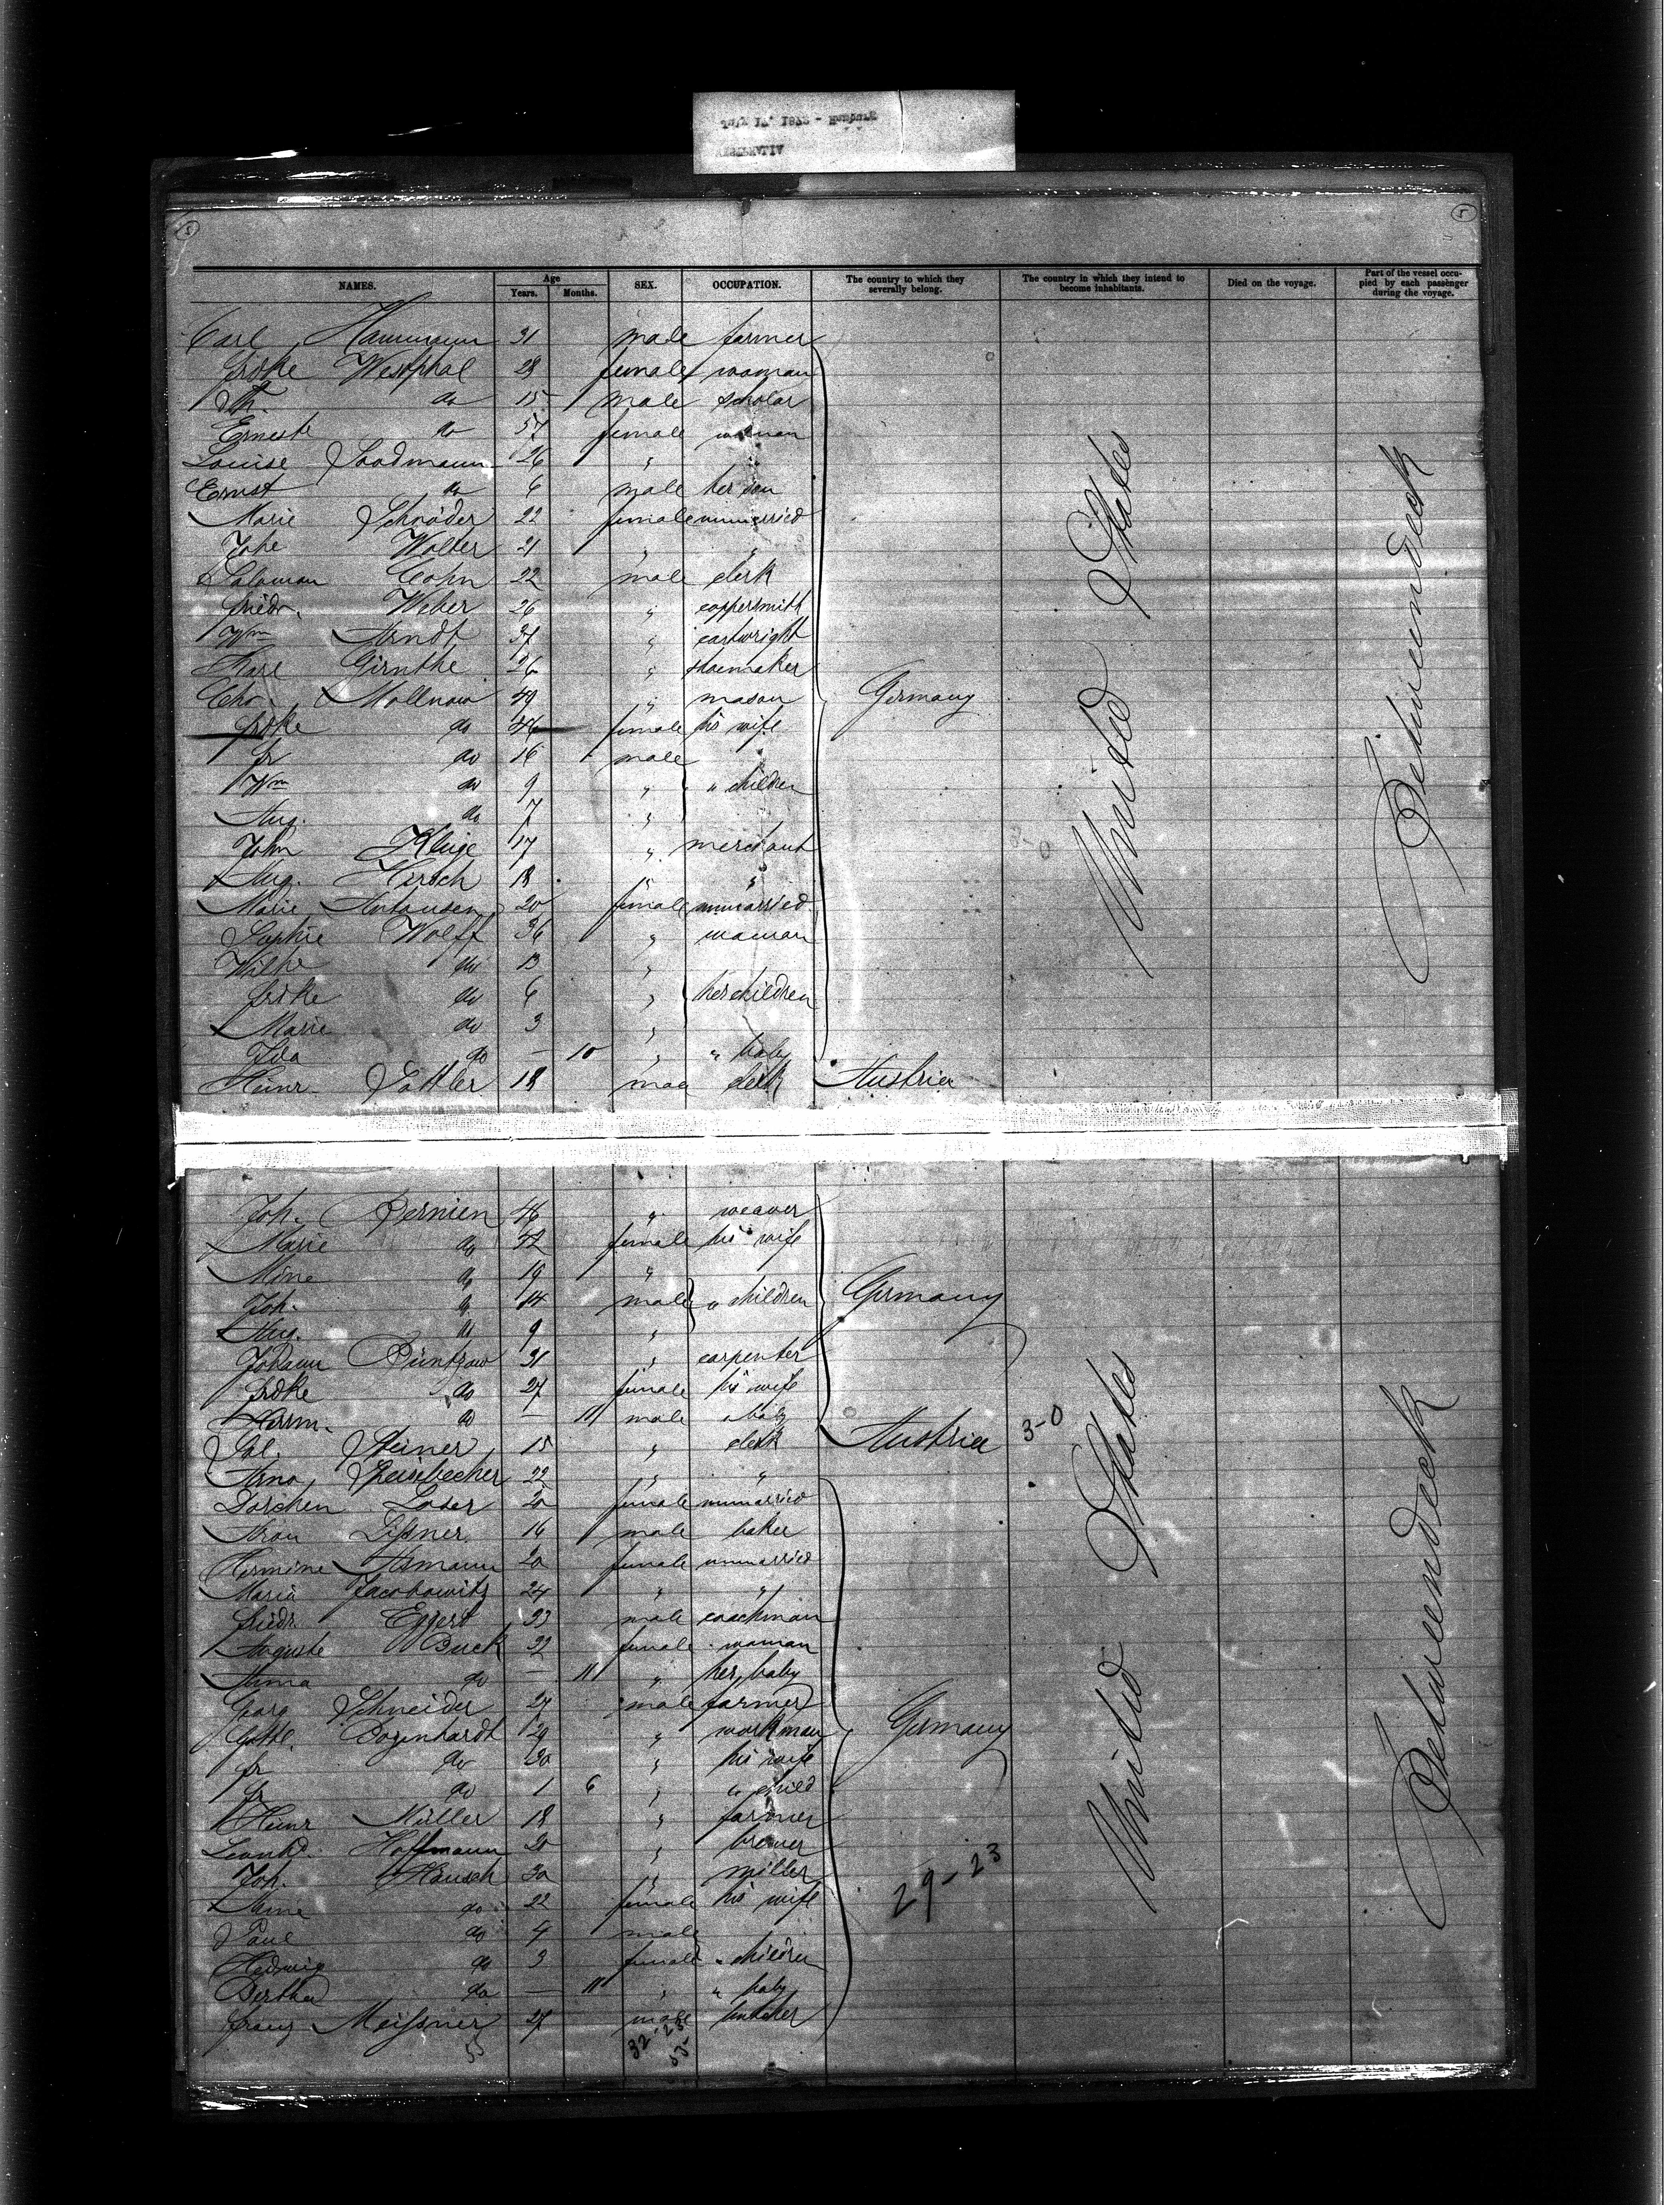 5 5
NAMES. Age Years. Months. SEX. OCCUPATION. The country to which they severally belong. The country in which they intend to become inhabitants. Died on the voyage. Part of the vessel occupied by each passenger during the voyage.
Carl Hammann 31 male farmer
Fridke Westphal 28 female woman
do 15 male scholar
Erneste do 57 female woman
Louise Soodmann 26 "
Ernst do 6 male her son
Marie Schröder 22 female unmarried
Johe Wolter 21 " "
Salomon Cohn 22 male clerk
Friedr. Weber 26 " coppersmith
Wm Arndt 37 " cartwright
Karl Girnthe 26 " shoemaker
Chr. Mollnow 49 " mason Germany
Fridke do 46 female his wife
Fr do 16 male
Wm do 9 " " children
Aug. do 7 "
John Kluge 17 " merchant
Aug. Hirsch 18 " "
Marie Antonsen 20 female unmarried
Sophie Wolff 36 " woman
Wilhe do 13 "
Fridke do 6 " her children
Marie do 3 "
Ida do — 10 " " baby
Heinr. Sattler 18 mal clerk Austria
United States
Betweendeck
Joh. Bernien 46 " weaver
Marie do 42 female his wife
Mine do 19 "
Joh. do 14 male " children Germany
Aug. do 9 "
Johann Buntrow 31 " carpenter
Fridke do 27 female his wife
Herm. do — 11 male baby
Sal. Steiner 15 " clerk Austria 3-0
22 " "
Dorchen Loser 20 female unmarried
Aron Lissner 16 male baker
Hermine 20 female unmarried
Maria Jacobowitz 24 " "
Friedr. Eggert 23 male coachman
Auguste Buck 22 female woman
Anna do — 11 " her baby
Georg Schneider 27 male farmer
Gottl. Bogenhardt 29 " workman Germany
Fr do 20 " his wife
Fr do 1 6 " " child
Heinr Müller 18 " farmer
Leonhd. Hoffmann 20 " brewer
Joh. Hausch 30 " miller 29-23
Anna do 22 female his wife
Paul do 4 male
Hedwig do 3 female " children
Bertha do — 11 " " baby
Franz Meissner 27 male butcher
55 32-23
55
United States
Betweendeck